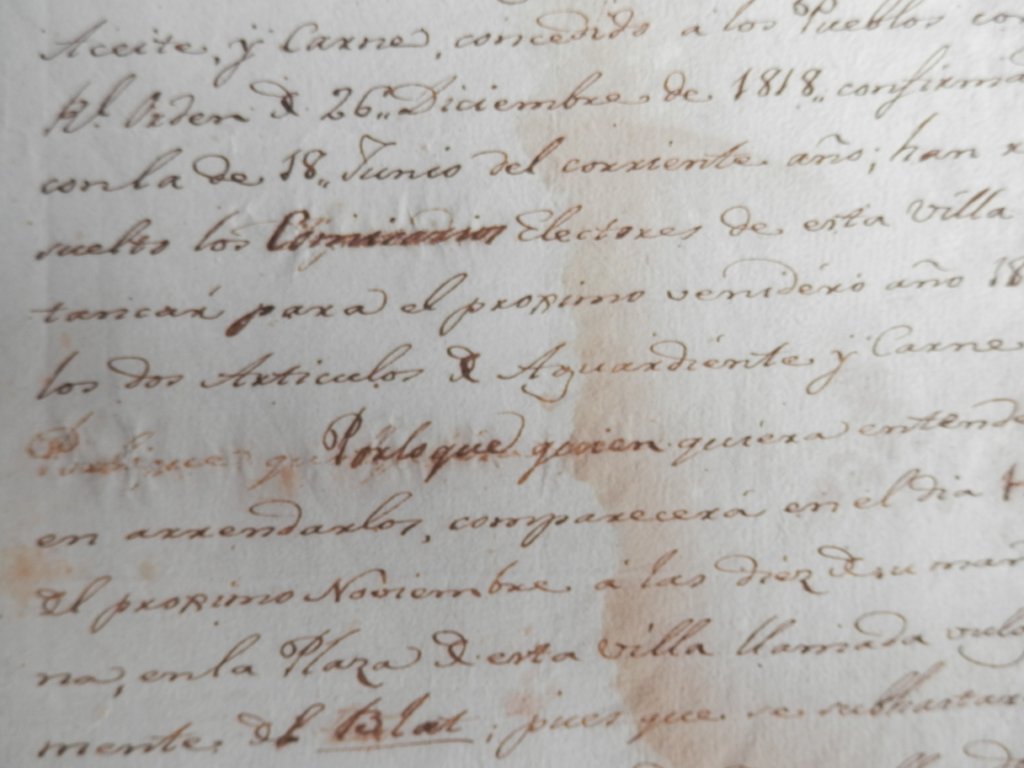 Aceite, y Carne, concedido a los Pueblos con
Rl. Orden de 26,, Diciembre de 1818,, confirmad
con la de 18,, Junio del corriente año; han re
suelto los Comisarios Electores de esta Villa
tancar para el proximo venidéro año 18
los dos Articulos de Aguardiente y Carne
Pórloque quien quiera entende
en arrendarlos, comparecerá en el dia
del proximo Noviembre á las diez de su mañ
na, en la Plaza de esta Villa llamada vulg
mente del Blat; pues que se subhastar